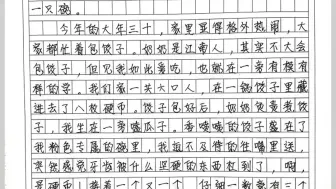 一只碗。
今年的大年三十，家里显得格外热闹，大
家都忙着包饺子。奶奶是江南人，其实不大会
包饺子，但见我如此爱吃，也就在一旁有模有
样的学。我们家一共六口人，在一锅饺子里藏
进去了八枚硬币。饺子包好后，奶奶负责煮饺
子，我坐在一旁嗑瓜子。香喷喷的饺子盛在了
我粉色专属的碗里，我迫不及待的往嘴里送，
突然感觉牙齿被什么坚硬的东西拉到了，啊，
是硬币！接着一个又一个，仔细一数竟有三